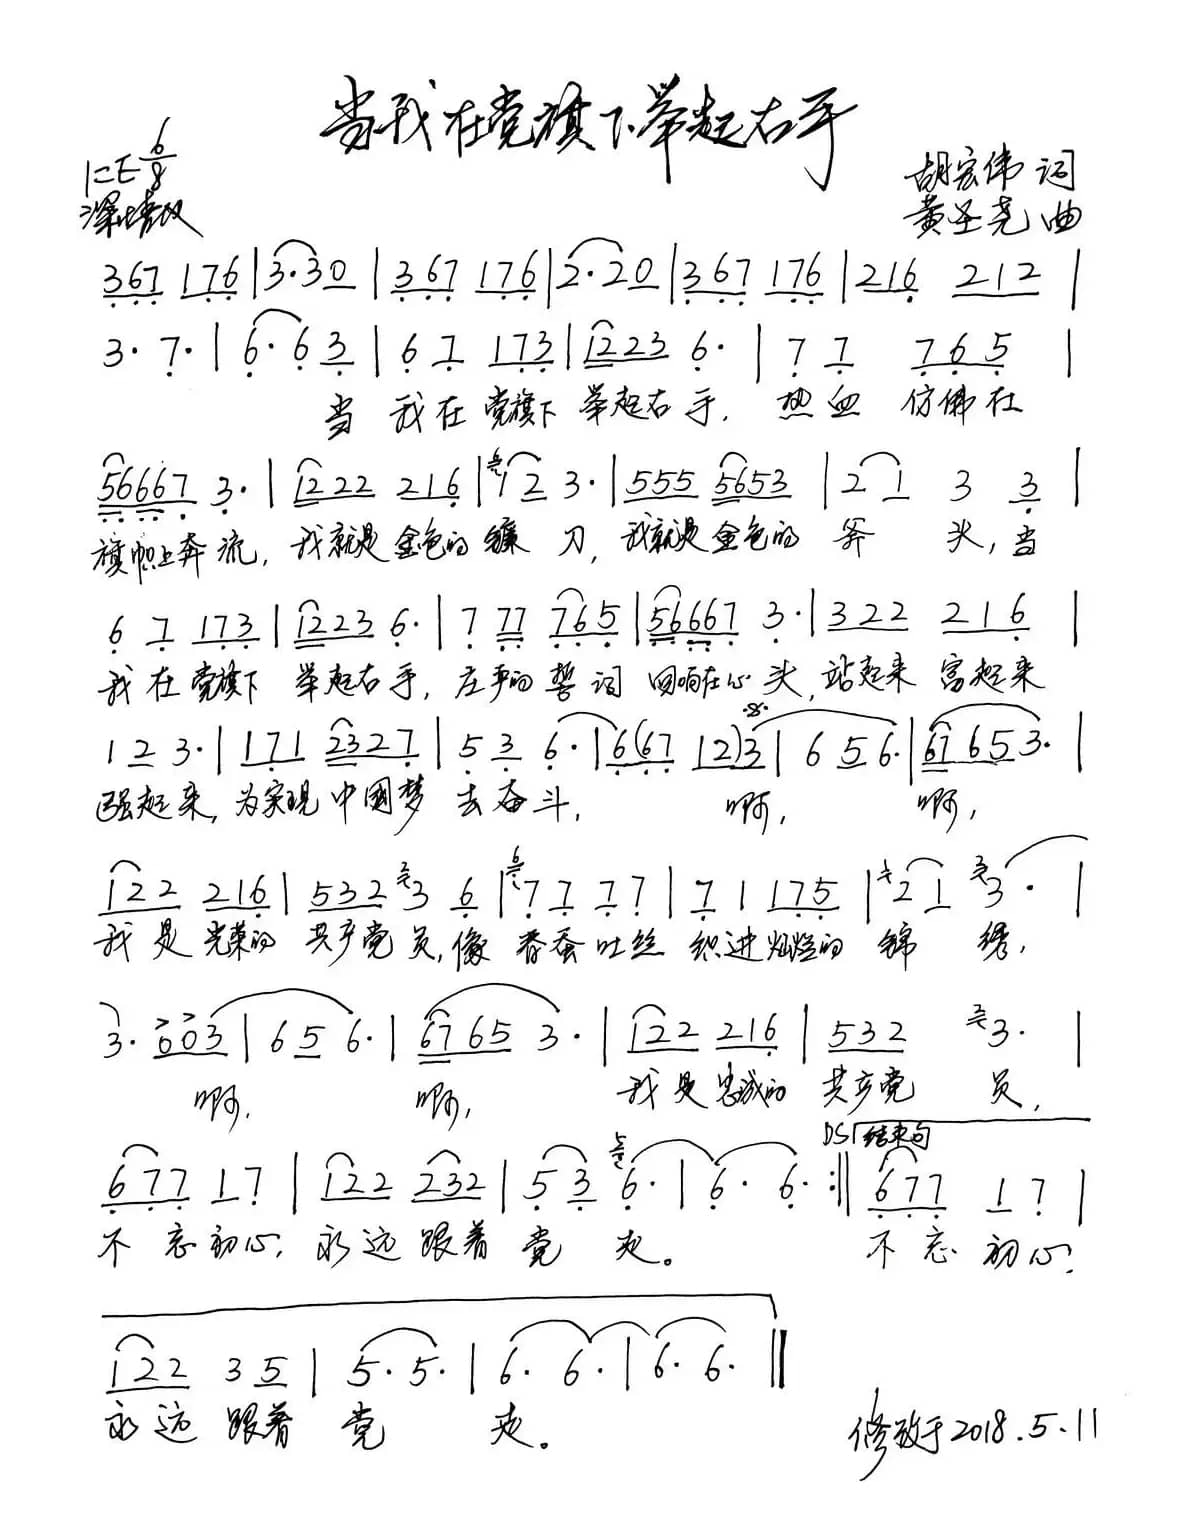 当我在党旗下举起右手
1=E 6/8
深情地
胡宏伟 词
黄圣尧 曲
367 176 | 3·30 | 367 176 | 2·20 | 367 176 | 216 212 |
3· 7· | 6·63 | 67 173 | 1223 6· | 77 765 |
当 我在党旗下 举起右手, 热血 仿佛在
56667 3· | 1222 216 | 12 3· | 555 5653 | 21 3 3 |
旗帜上奔流, 我就是金色的镰 刀, 我就是金色的 斧 头, 当
67 173 | 1223 6· | 777 765 | 56667 3· | 322 216 |
我在党旗下 举起右手, 庄严的誓词 回响在心头, 站起来 富起来
12 3· | 171 2327 | 53 6· | 6(67 12)3 | 656· | 67653· |
强起来, 为实现中国梦 去奋斗, 啊, 啊,
122 216 | 532 3 6 | 77 77 | 71 175 | 21 3· |
我是光荣的 共产党员, 像 春蚕吐丝 织进灿烂的 锦 绣,
3· 003 | 656· | 6765 3· | 122 216 | 532 3· |
啊, 啊, 我是忠诚的 共产党 员,
DS 结束句
677 17 | 122 232 | 53 6· | 6· 6· :‖ 677 17 |
不忘初心, 永远跟着党 走。 不忘初心,
122 35 | 5·5· | 6· 6· | 6· 6· ‖
永远 跟着 党 走。
修改于2018.5.11